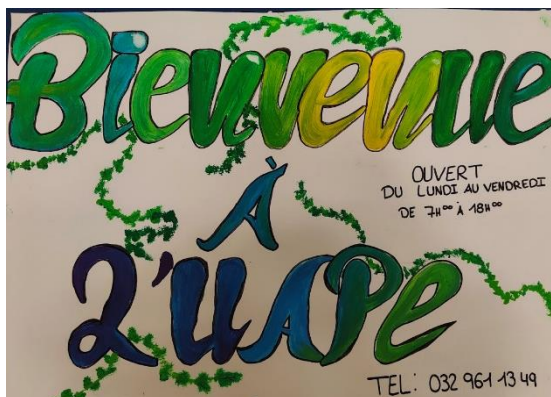 Bienvenue
À
L'UAPE
OUVERT
DU LUNDI AU VENDREDI
DE 7H00 À 18H00
TEL: 032 961 13 49